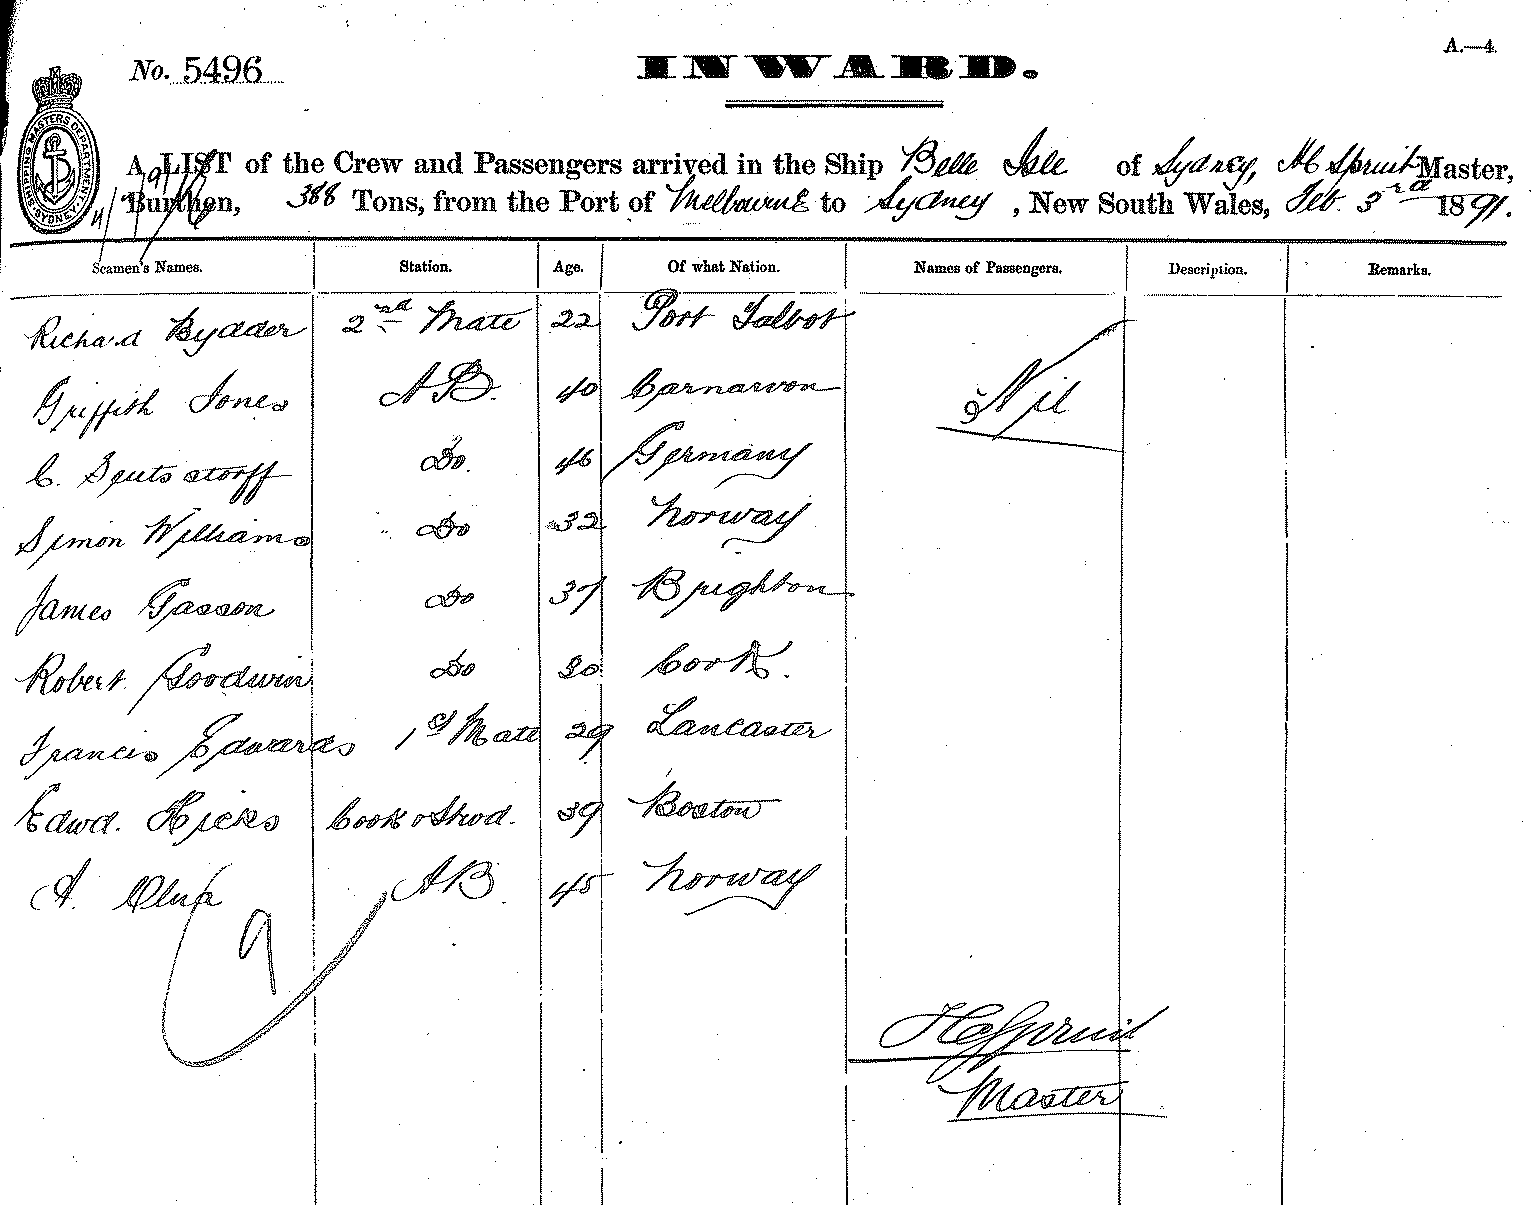 A.—4.
No. 5496
INWARD.
SHIPPING MASTERS DEPARTMENT SYDNEY
A LIST of the Crew and Passengers arrived in the Ship Belle Isle of Sydney, HC Spruit Master,
Burthen, 388 Tons, from the Port of Melbourne to Sydney, New South Wales, Feb. 3rd 1891.
Seamen's Names. Station. Age. Of what Nation. Names of Passengers. Description. Remarks.
Richard Bydder 2nd Mate 22 Port Talbot
Griffith Jones AB. 40 Carnarvon Nil
C. Do. 46 Germany
Simon Williams Do 32 Norway
James Gasson Do 37 Brighton
Robert Goodwin Do 30 Cork.
Francis Edwards 1st Mate 29 Lancaster
Edwd. Hicks Cook & Stwd. 39 Boston
A. AB 45 Norway
9
HCSpruit
Master